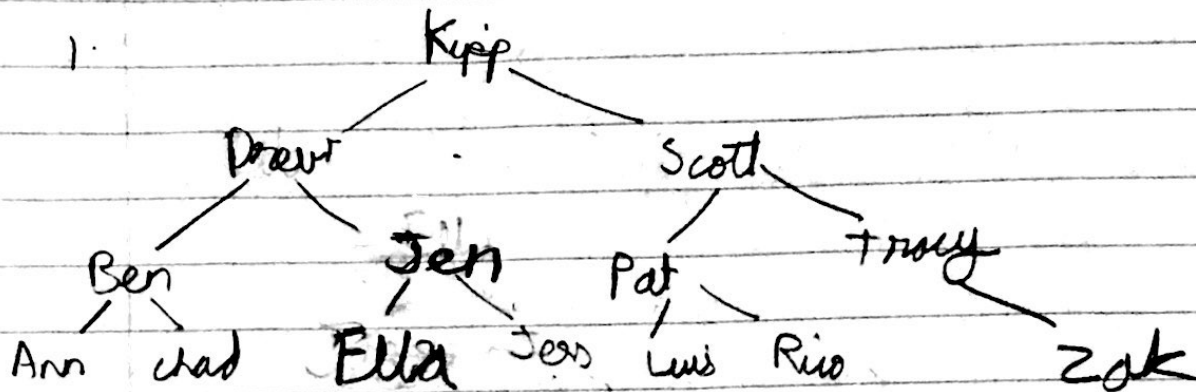 1.
Kipp
Drew Scott
Ben Jen Pat Tracy
Ann Chad Ella Jess Luis Rico Zak